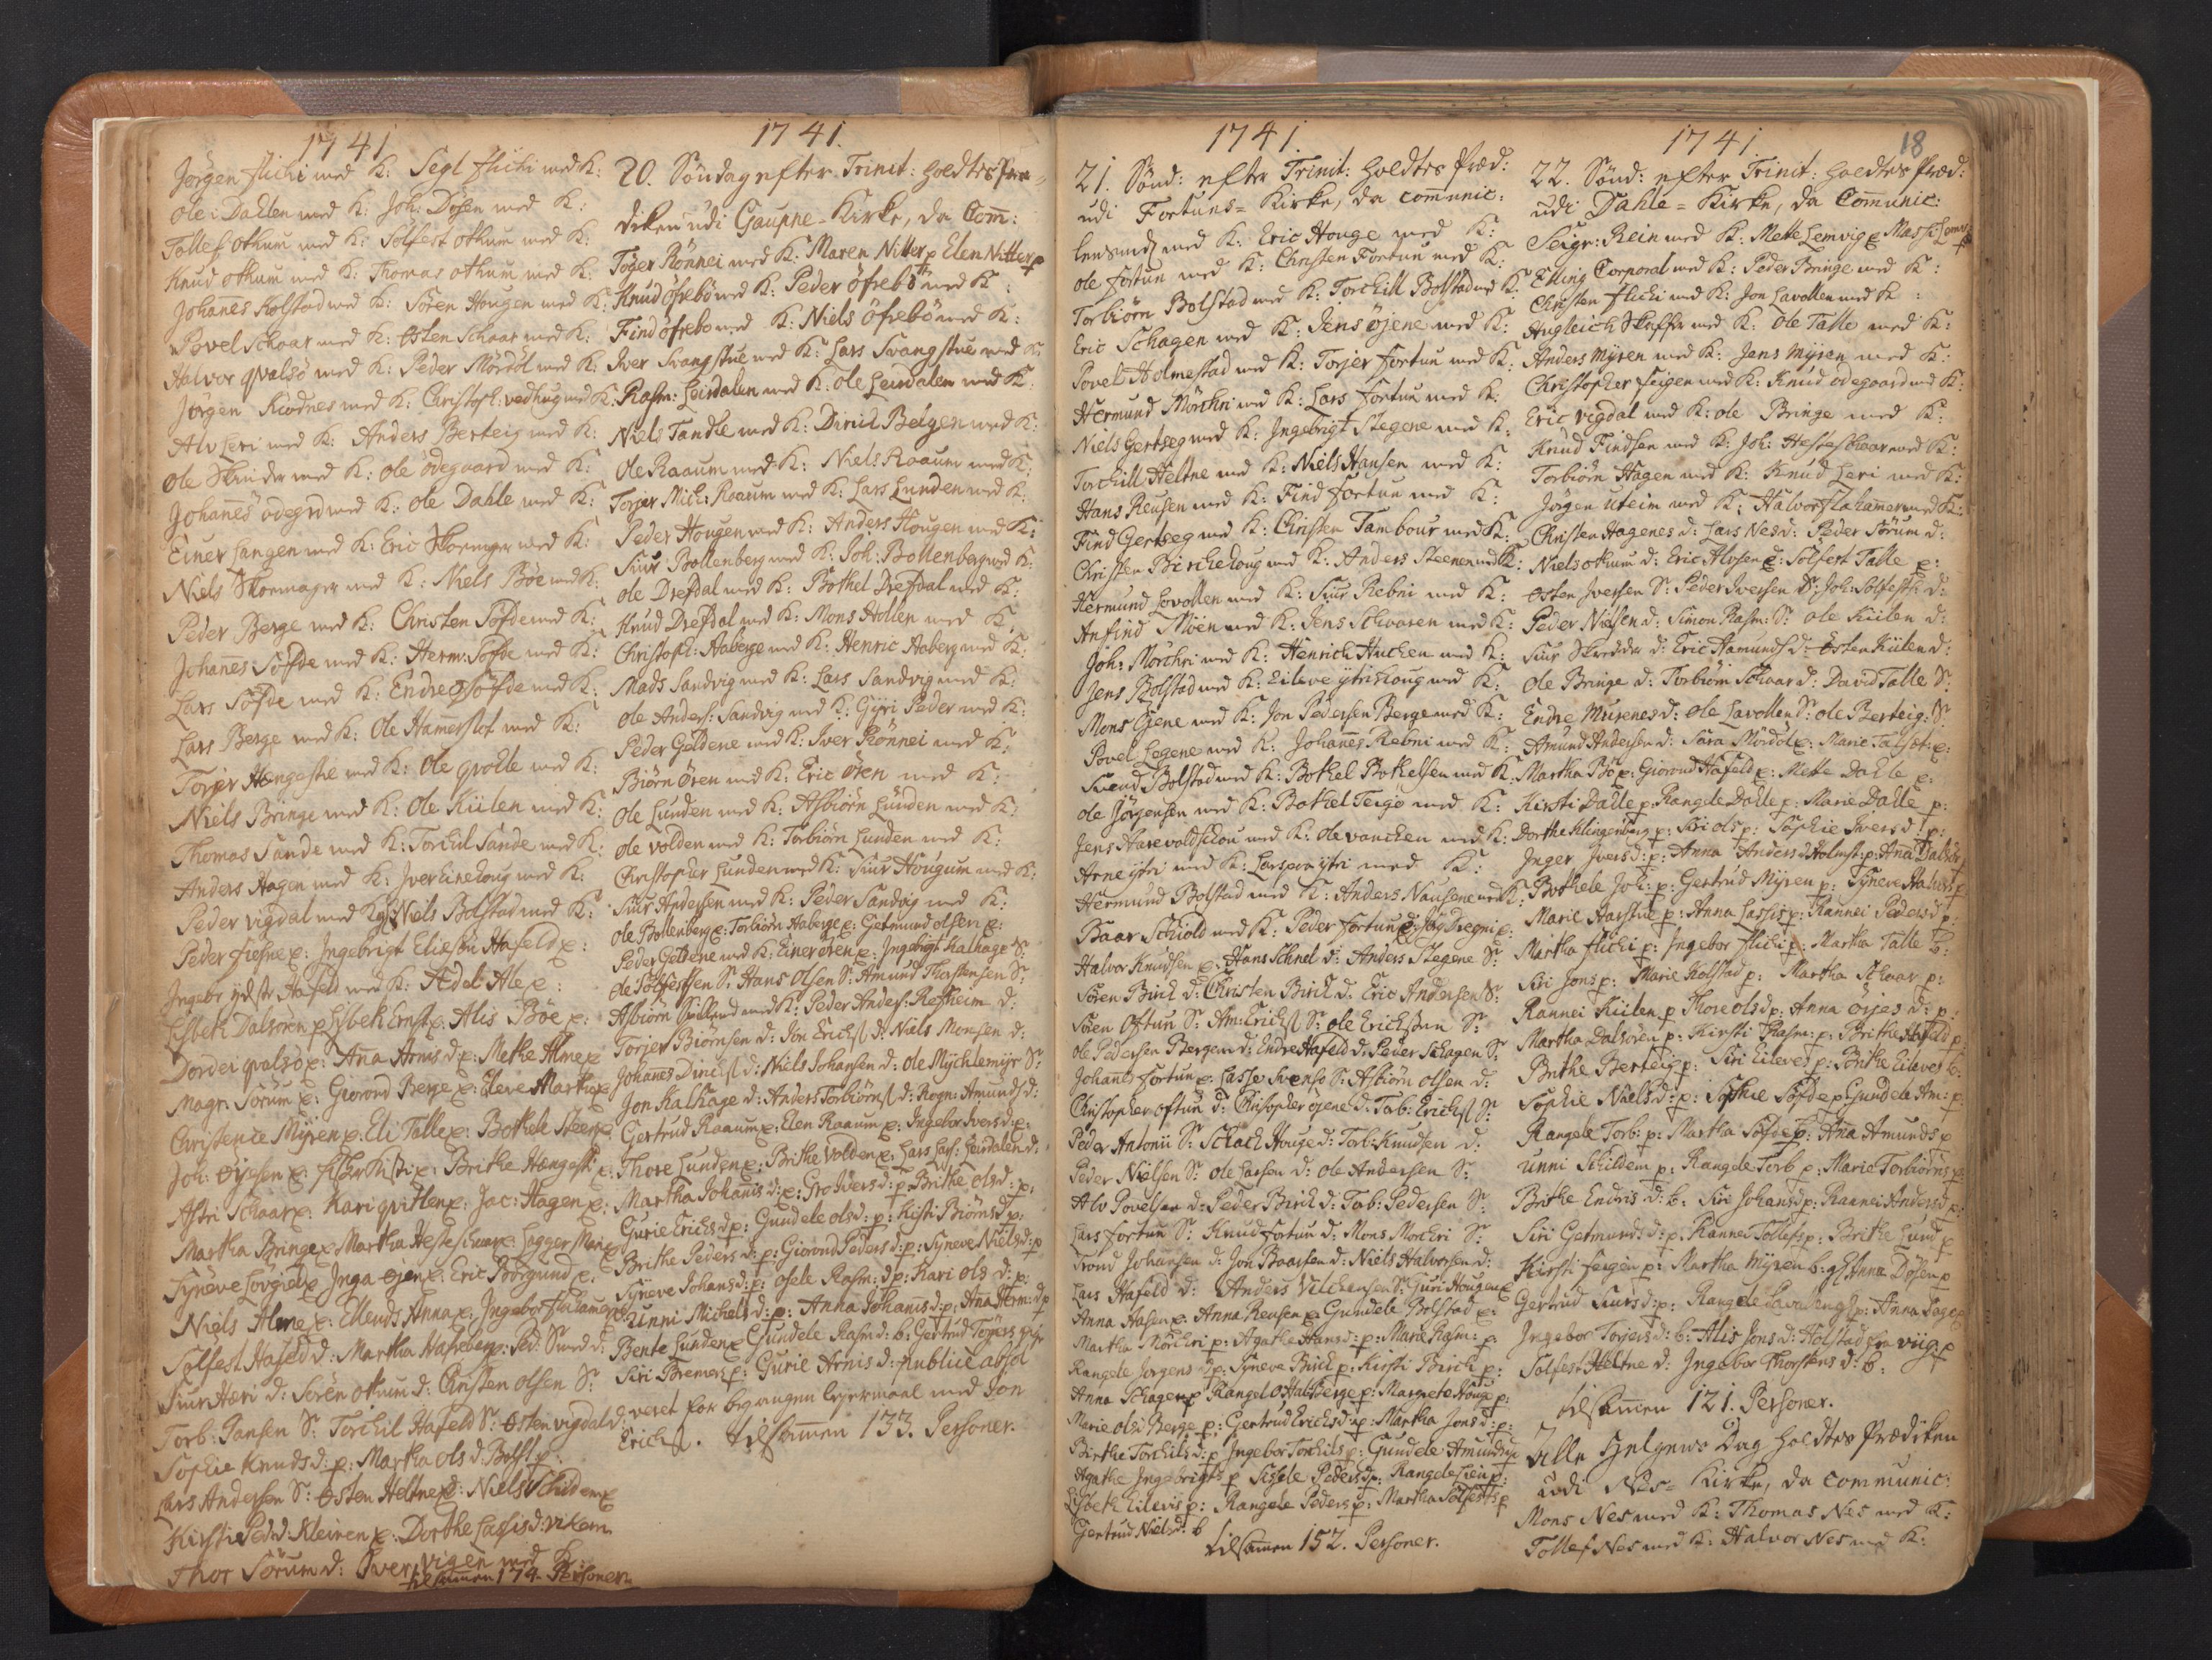 1741
Jörgen flichi med K: Segl flichi med K:
ole i Dahlen med K: Joh: Dösen med K:
Tollef otnum med K: Solfest otnum med K:
Knud otnum med K: Thomas otnum med K:
Johanes Kolstad med K: Sören Hougen med K:
Povel Schaar med K: Osten Schaar med K:
Halvor qvalsö med K: Peder Mördöl med K:
Jörgen med K: Christoph: med K:
Alv Leri med K: Anders Berteig med K:
ole med K: ole ödegaard med K:
Johanes ödegrd med K: ole Dahle med K:
Einer Langen med K: Eric med K:
Niels Skomager med K: Niels Böe med K:
Peder Berge med K: Christen Söfde med K:
Johanes Söfde med K: Herm: Söfde med K:
Lars Söfde med K: Endre Söfde med K:
Lars Berge med K: Ole med K:
Torjer med K: Ole med K:
Niels Bringe med K: Ole Kiilen med K:
Thomas Sande med K: Torchil Sande med K:
Anders Hagen med K: Jver med K:
Peder vigdal med K Niels Bolstad med K:
Peder p: Ingebrigt Hafeld p:
Hafeld med K:
Dalsören p Ernst p: Alis Böe p:
Dordei qvalsö p: Ana Arnis d: p: Methe Alme p
Magr: Sörum p: Giorond Berge p: Martha p
Christence Myren p: Eli Talle p: Bothele p
Joh: p: p: Brithe p:
Astri Schaar p: Kari p: Jac: Hagen p:
Martha Bringe p Martha p:
Syneve p Inga p: Eric Borgund p:
Niels Alme p: Anna p: Ingebor
Solfest Hafeld d: Martha p: Ped: d:
Siur d: Sören otnum d: Christen olsen S:
Torb: Jansen S: Torchil Hafeld S: Osten vigdal d:
Sophie Knuds d: p: Martha ols d: p
Lars Andersen S: Osten Heltne d: Niels
Kirsti Ped: d: p: Dorthe d:
Thor Sörum d: Jver vigen med K:
tilsamen 174. Personer.
1741.
20. Söndag efter Trinit: holdtes Præ-
diken udi Gaupne-Kirke, da Com:
Töger Rönnei med K: Maren Nitter p Elen Nitter p
Knud öfrebö med K: Peder öfrebö med K:
Find öfrebo med K: Niels öfrebö med K:
Jver Svangstue med K: Lars Svangstue med K:
Rasm: Leirdalen med K: Ole Leirdalen med K:
Niels Tandle med K: med K:
Ole Raaum med K: Niels Raaum med K:
Torjer Mich: Raaum med K: Lars Lunden med K:
Peder Hougen med K: Anders Hougen med K:
Siur Bollenberg med K: Joh: Bollenberg med K:
ole Drefdal med K: Bothel Drefdal med K:
Knud Drefdal med K: Mons Hollen med K:
Christoph: Aaberge med K: Henric Aaberg med K:
Mads Sandvig med K: Lars Sandvig med K:
ole Anders: Sandvig med K: Gyri Peder med K:
Peder Geldene med K: Jver Rönnei med K:
Biörn ören med K: Eric ören med K:
Ole Lunden med K: Asbiörn Lünden med K:
ole volden med K: Torbiörn Lunden med K:
Christopher Lunden med K: Siur Hougum med K:
Siur Andersen med K: Peder Sandvig med K:
ole Bollenberg p: Torbiörn Aaberge p: Getmund olsen p:
Peder Geldene med K: Einer ören p: Ingebrigt Kalhage S:
ole Solfestsen S: Hans olsen S: Amund Thorstensen S:
Asbiörn med K: Peder Anders: d:
Torjer Biörnsen d: Jon d: Niels Monsen d:
Johanes d: Niels Johansen d: ole Mycklemyr S:
Jon Kalhage d: Anders d: d:
Gertrud Raaum p: Elen Raaum p: Ingebor Jvers d: p:
Thore Lunden p: Brithe Volden p: Lars Leirdalen d:
Martha Johanis d: p: Gro Jvers d: p: Brithe ols d: p:
Gurie Erichs d: p: Gundele ols d: p: Kisti Biörns d: p:
Brithe Peders d: p: Giorond Peders d: p: Syneve Niels d: p
Syneve Johans d: p: osele Rasm: d p: Kari ols d: p:
Unni Michels d: p: Anna Johanis d: p: Ana Herm: d p
Bente Lunden p Gundele Rasm d: b: Gertrud
Siri p: Gurie Arnis d: publice absol
veret for begangen leyermaal med Jon
Erichs. tilsammen 133. Personer.
1741.
21. Sönd: efter Trinit: holdtes Præd:
udi Fortuns-Kirke, da comunic:
med K: Eric Houge med K:
ole fortun med K: Christen Fortun med K:
Torbiörn Bolstad med K: Torchill Bolstad med K:
Eric Schagen med K: Jens öjene med K:
Povel Holmestad med K: Torjer fortun med K:
Hermund Mörchri med K: Lars fortun med K:
Niels Gertseg med K: Ingebrigt Stegene med K:
Torchill Heltne med K: Niels Hansen med K:
Hans Reusen med K: Find fortun med K:
Find Gertseg med K: Christen Tambour med K:
Christen med K: Anders med K:
Hermund Lovollen med K: Siur Rebni med K:
Anfind Möen med K: Jens med K:
Joh: Mörchri med K: Henrich med K:
Jens Bolstad med K: Eileve med K:
Mons med K: Jon Pedersen Berge med K:
Povel med K: Johanes Rebni med K:
Svend Bolstad med K: Bothel Bothelsen med K:
ole Jörgensen med K: Bothel med K:
Jens med K: ole med K:
Arne med K: med K:
Hermund Bolstad med K: Anders med K:
Baar Schiold med K: Peder fortun
Halvor Knudsen p: Hans d: Anders Stegene S:
Sören Birch d: Christen Birch d: Eric Andersen S:
Sören Oftun S: Am: S: ole Erichsen S:
ole Pedersen Bergem d: Endre Hafeld d: Peder Schagen S:
Johanes fortun p: S: Asbiörn olsen d:
Christopher oftun d: Christopher öjene d: Torb: S:
Peder Antonii S: Houge d: Torb: Knudsen d:
Peder Nielsen S: Ole Larsen d: ole Andersen S:
Alv Povelsen d: Peder Birch d: Torb: Pedersen S:
Lars fortun S: Knud fortun d: Mons Morchri S:
Trond Johansen d: Jon Baarsen d: Niels Halvorsen d:
Lars Hafeld d: Anders S: Guri Hougen p
Anna p: Anna Reusen p Gundele Bolstad p:
Martha Mörchri p: Agathe Hans d: p: Marie Rasm: p:
Rangele Jorgens d p: Syneve Birch p: Kirsti Birch p:
Anna Schagen p Rangel p: Margrete Houge p:
Marie ols: Berge p: Gertrud Erichs d: p: Martha Jons d: p:
Birthe Torchils d: p Ingebor Torchils p: Gundele Amunds p
Agathe Ingebrigts p Sissele Peders d p: Rangele p:
Lisbeth Eilevs p: Rangele Peders p: Martha Solfests p
Gertrud Niels d: b
tilsamen 152. Personer.
1741.
18
22. Sönd: efter Trinit: holdtes Præd:
udi Dahle-Kirke, da Comunic:
Seigr: Rein med K: Mette Lemvig p
Elling Corporal med K: Peder Bringe med K:
Christen flichi med K: Jon Lavollen med K:
med K: Ole Talle med K:
Anders Myren med K: Jens Myren med K:
Christopher feigen med K: Knud ödegaard med K:
Eric vigdal med K: ole Bringe med K:
Knud Findsen med K: Joh: Hesteschaar med K:
Torbiörn Hagen med K: Knud Leri med K:
Jörgen uteim med K: Halvor med K:
Christen Hagenes d: Lars Nes d: Peder Sörum d:
Niels otnum d: Eric p: Solfest Talle p:
osten Jversen S: Peder Jversen S: Joh: d:
Peder Nielsen d: Simon Rasm: S: ole Kiilen d:
Siur Skredder d: Eric d: Osten Kiilen d:
Ole Bringe d: Torbiörn Schaar d: David Talle S:
Endre d: ole Lavollen S: ole Berteig: S:
Amund Andersen d: Sara Mördöl p: Marie p:
Martha Bö p: Giorond Hafeld p: Mette Dahle p:
Kirsti Dalle p: Rangele Dalle p: Marie Dalle p:
Dorthe Klingenberg p: Siri ols p: Sophie Jvers d: p:
Inger Jvers d: p: Anna Anders d Holmst: p: Ana
Bothele Joh: p: Gertrud Myren p: Syneve
Marie p: Anna p: Rannei Peders d p
Martha flichi p: Ingebor flichi p: Martha Talle b:
Siri Jons p: Marie Kolstad p: Martha Schaar p:
Rannei Kiilen p Thore ols d p: Anna d: p:
Martha Dalsören p: Kirsti Rasm: p: Brithe Hafeld p
Brithe Berteig p: Siri Eileves p: Brithe Eileves b:
Sophie Niels d: p: Sophie Söfde p: Gundele Am: p:
Rangele Torb: p: Martha Söfde p: Ana Amunds p
unni Schildem p: Rangele Torb p: Marie Torbiörns p:
Brithe Endris d: b: Siri Johans d p: Rannei Anders d p:
Siri Getmunds d: p: Rannei Tollefs p: Brithe Lund p
Kirsti feigen p: Martha Myren b: Anna Dösen p
Gertrud Siurs d: p: Rangele p: Anna
Ingebor Torjers d: b: Alis Jons d: p
Solfest Heltne d: Ingebor Thorstens d: b:
tilsamen 121. Personer.
Alle Helgens Dag holdtes Prædiken
udi Nes-Kirke, da communic:
Mons Nes med K: Thomas Nes med K:
Tollef Nes med K: Halvor Nes med K: